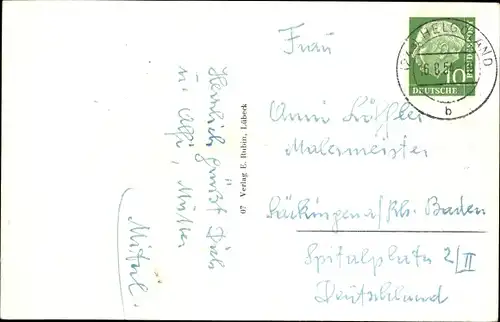 Herzlich grüßt Dich
u. Alfi, Mutter
07 Verlag E. Rubin, Lübeck
(24) HELGOLAND
6.8.5
b
10
DEUTSCHE
Frau
Anni Löffler
Malermeister
Säckingen a/Rh. Baden
Spitalplatz 2/II
Deutschland